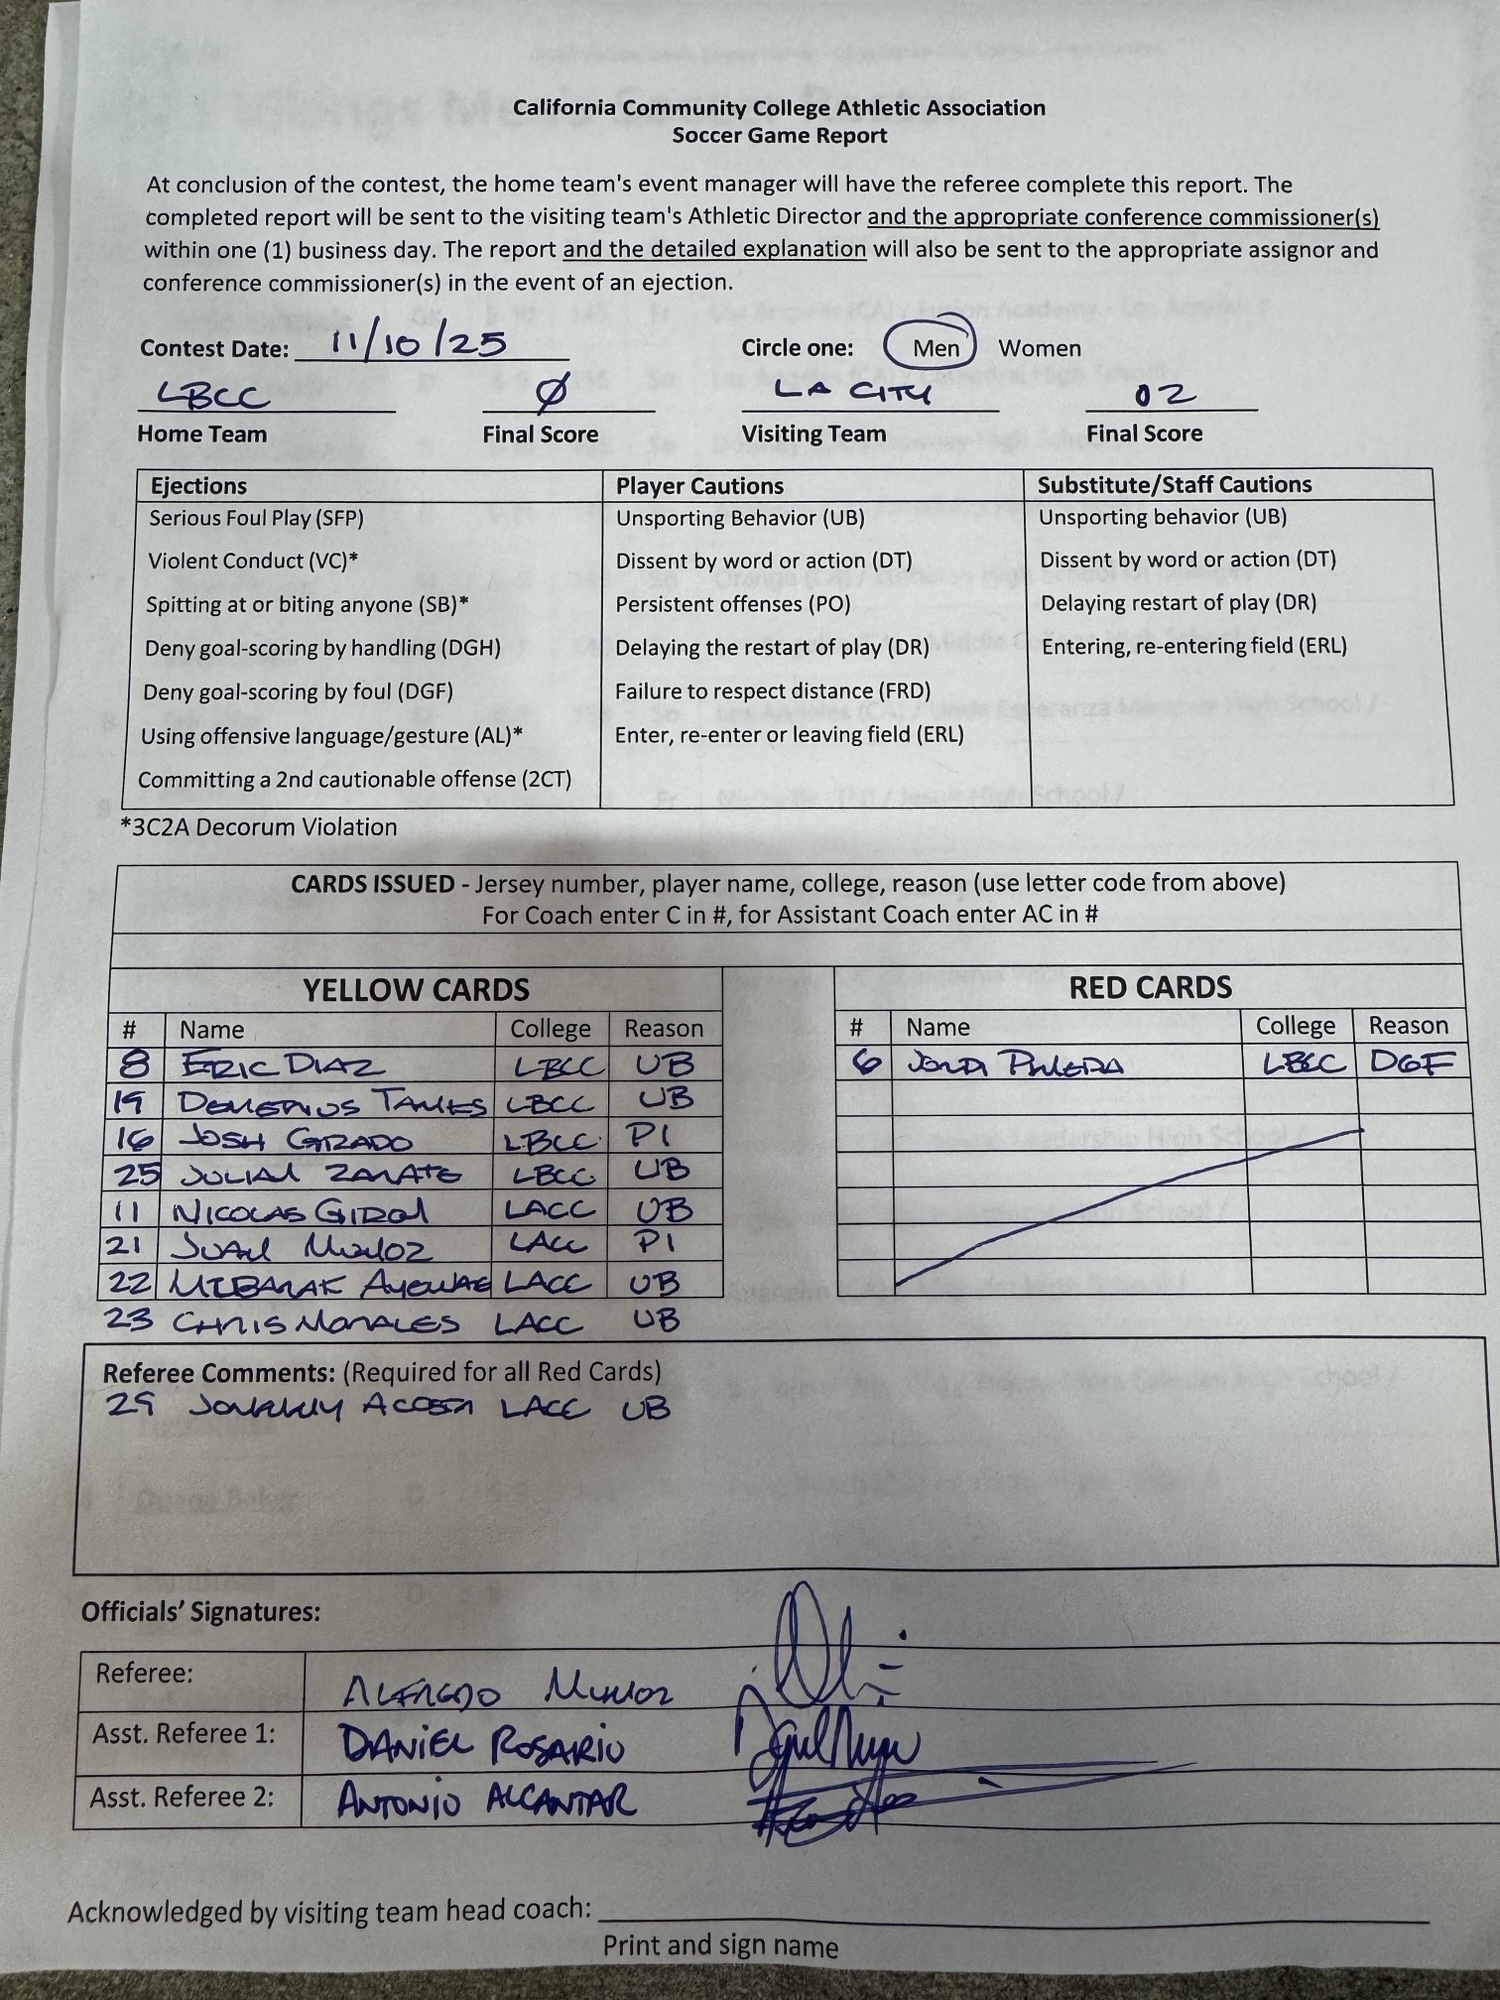 California Community College Athletic Association
Soccer Game Report
At conclusion of the contest, the home team's event manager will have the referee complete this report. The
completed report will be sent to the visiting team's Athletic Director and the appropriate conference commissioner(s)
within one (1) business day. The report and the detailed explanation will also be sent to the appropriate assignor and
conference commissioner(s) in the event of an ejection.
Contest Date: 11/10/25 Circle one: Men Women
LBCC Ø LA CITY 02
Home Team Final Score Visiting Team Final Score
Ejections Player Cautions Substitute/Staff Cautions
Serious Foul Play (SFP) Unsporting Behavior (UB) Unsporting behavior (UB)
Violent Conduct (VC)* Dissent by word or action (DT) Dissent by word or action (DT)
Spitting at or biting anyone (SB)* Persistent offenses (PO) Delaying restart of play (DR)
Deny goal-scoring by handling (DGH) Delaying the restart of play (DR) Entering, re-entering field (ERL)
Deny goal-scoring by foul (DGF) Failure to respect distance (FRD)
Using offensive language/gesture (AL)* Enter, re-enter or leaving field (ERL)
Committing a 2nd cautionable offense (2CT)
*3C2A Decorum Violation
CARDS ISSUED - Jersey number, player name, college, reason (use letter code from above)
For Coach enter C in #, for Assistant Coach enter AC in #
YELLOW CARDS RED CARDS
# Name College Reason # Name College Reason
8 ERIC DIAZ LBCC UB 6 JORDI LBCC DGF
19 TAMES LBCC UB
16 JOSH LBCC PI
25 JULIAN ZARATE LBCC UB
11 NICOLAS GIRON LACC UB
21 JUAN MUNOZ LACC PI
22 LACC UB
23 CHRIS MORALES LACC UB
Referee Comments: (Required for all Red Cards)
29 ACOSTA LACC UB
Officials' Signatures:
Referee: ALFREDO MUNOZ
Asst. Referee 1: DANIEL ROSARIO
Asst. Referee 2: ANTONIO ALCANTAR
Acknowledged by visiting team head coach:
Print and sign name